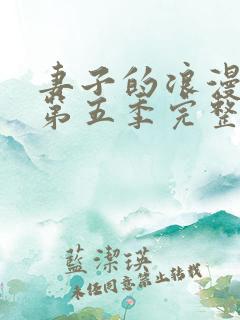 妻子的浪漫
第五季完整
藍潔瑛
未经同意禁止转载